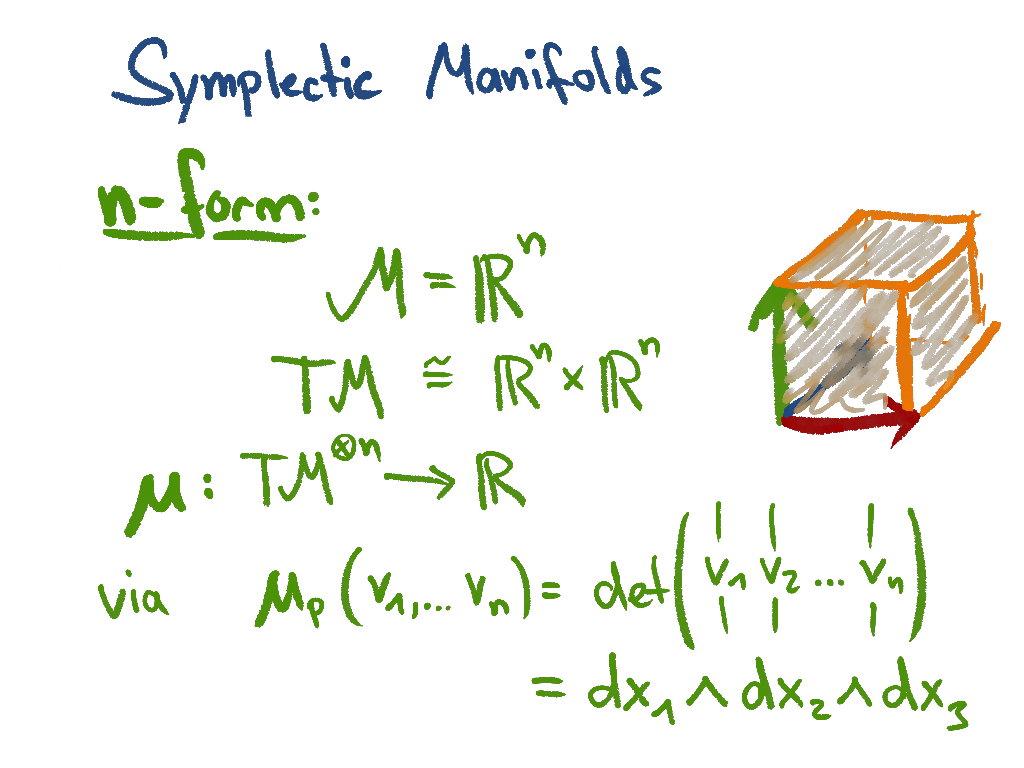 Symplectic Manifolds
n-form:
M = ℝⁿ
TM ≅ ℝⁿ × ℝⁿ
μ: TM^⊗n → ℝ
via μₚ(v₁,... vₙ) = det(v₁ v₂ ... vₙ)
= dx₁ ∧ dx₂ ∧ dx₃